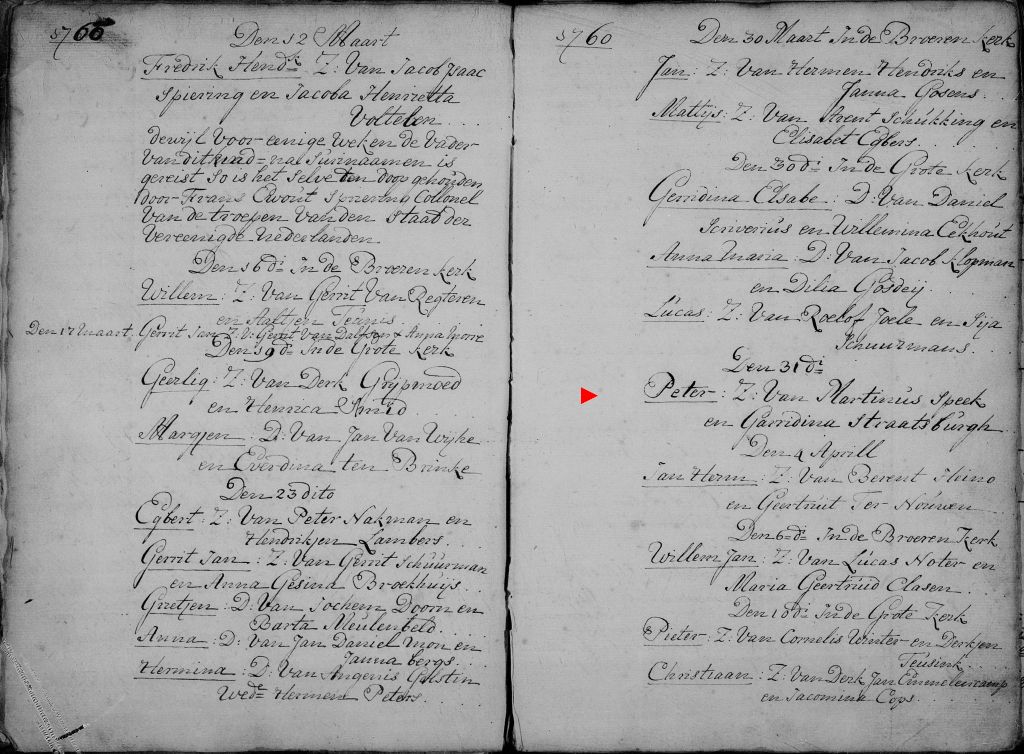 1760
Den 12 Maart
Fredrik Hendk Z: Van Jacob Isaac
Spiering en Jacoba Henrietta
Voltelen
dewijl voor eenige weken de vader
van dit kind = na Surinaamen is
gereist so is het selve ten doop gehouden
door Frans Ewout Spiering Collonel
van de troepen van den staat der
Vereenigde Nederlanden
Den 16 di In de Broeren kerk
Willem: Z: Van Gerrit Van Regteren
en Aaltjen Teunis
Den 17 maart. Gerrit Jan Z. V: Gerrit Van Dalfsen & Anna
Den 19 di In de Grote kerk
Geerlig: Z: Van Derk Grijpmoed
en Henrica Smid
Margjen: D: Van Jan Van Wijhe
en Everdina ten Brinke
Den 23 dito
Egbert: Z: Van Peter Nakman en
Hendrikjen Lambers.
Gerrit Jan: Z: Van Gerrit Schuurman
en Anna Gesina Broekhuijs
Grietjen: D: Van Jochem Doorn en
Barta Meulenbeld.
Anna: D: Van Jan Daniel mon en
Janna bergs.
Hermina: D: Van Angenis
Wede Hermen Peters.
1760
Den 30 Maart In de Broeren kerk
Jan: Z: Van Hermen Hendriks en
Janna Gosens.
Mattijs: Z: Van Arent Schukking en
Elisabet Egbers
Den 30 di In de Grote kerk
Gerridina Elsabe: D: Van Daniel
Scriverius en Willemina Eekhout
Anna Maria: D: Van Jacob Klopman
en Dilia
Lucas: Z: Van Roelof Joele en Sija
Schuurmans.
Den 31 di
Peter: Z: Van Martinus Speek
en Garridina Straatsburgh
Den 4 Aprill
Jan Herm: Z: Van Berent Heino
en Geertruit Ter Nouwen
Den 6 di In de Broeren Kerk
Willem Jan: Z: Van Lucas Noter en
Maria Geertruid Clasen.
Den 10 di In de Grote Kerk
Pieter: Z: Van Cornelis Winter en Derkjen
Teusink
Christiaan: Z: Van Derk Jan Emmelenkamp
en Jacomina Cops.